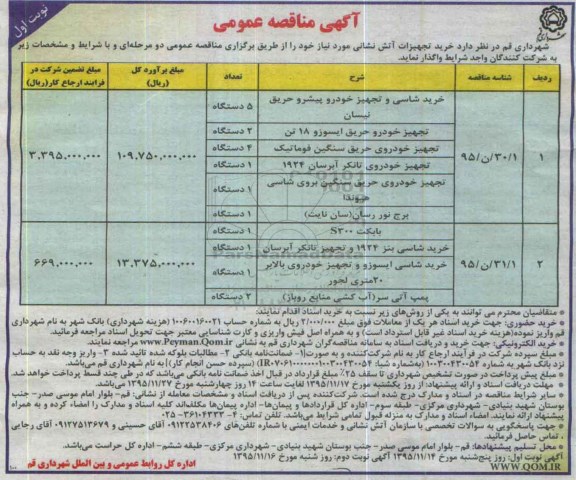 نوبت اول
آگهی مناقصه عمومی
شهرداری قم در نظر دارد خرید تجهیزات آتش نشانی مورد نیاز خود را از طریق برگزاری مناقصه عمومی دو مرحله‌ای و با شرایط و مشخصات زیر
به شرکت کنندگان واجد شرایط واگذار نماید.
ردیف شناسه مناقصه شرح تعداد مبلغ برآورد کل (ریال) مبلغ تضمین شرکت در فرایند ارجاع کار(ریال)
۱ ۹۵/ن/۳۰/۱ ۱۰۹,۷۵۰,۰۰۰,۰۰۰ ۳,۳۹۵,۰۰۰,۰۰۰
خرید شاسی و تجهیز خودرو پیشرو حریق نیسان ۵ دستگاه
تجهیز خودرو حریق ایسوزو ۱۸ تن ۲ دستگاه
تجهیز خودروی حریق سنگین فوماتیک ۴ دستگاه
تجهیز خودروی تانکر آبرسان ۱۹۲۴ ۱ دستگاه
تجهیز خودروی حریق سنگین بروی شاسی هیوندا ۱ دستگاه
برج نور رسان(سان نایت) ۱ دستگاه
۲ ۹۵/ن/۳۱/۱ ۱۳,۳۷۵,۰۰۰,۰۰۰ ۶۶۹,۰۰۰,۰۰۰
بابکت S۳۰۰ ۱ دستگاه
خرید شاسی بنز ۱۹۲۴ و تجهیز تانکر آبرسان ۱ دستگاه
خرید شاسی ایسوزو و تجهیز خودروی بالابر ۲۰متری لجور ۱ دستگاه
پمپ آتی سر(آب کشی منابع روباز) ۲ دستگاه
متقاضیان محترم می توانند به یکی از روش‌های زیر نسبت به خرید اسناد اقدام نمایند:
خرید حضوری: جهت خرید اسناد هر یک از معاملات فوق مبلغ ۲/۰۰۰/۰۰۰ ریال به شماره حساب ۱۰۰۶۰۰۱۶۰۰۲۱ (هزینه شهرداری) بانک شهر به نام شهرداری
قم واریز نموده(هزینه خرید اسناد غیر قابل استرداد است) و به همراه اصل فیش واریزی و کارت شناسایی معتبر جهت تحویل اسناد مراجعه فرمائید.
خرید الکترونیکی: جهت خرید و دریافت اسناد به سامانه مناقصه‌گران شهرداری قم به نشانی www.Peyman.Qom.ir مراجعه نمایند.
مبلغ سپرده شرکت در فرآیند ارجاع کار به نام شرکت‌کننده و به صورت(۱- ضمانت‌نامه بانکی ۲- مطالبات بلوکه شده تائید شده ۳- واریز وجه نقد به حساب
مبلغ پیش پرداخت در صورت تشخیص شهرداری تا سقف ۲۵٪ مبلغ قرارداد در قبال اخذ ضمانت نامه بانکی می‌باشد که در طی چند قسط پرداخت خواهد شد.
مهلت دریافت اسناد و ارائه پیشنهاد: از روز یکشنبه مورخ ۱۳۹۵/۱۱/۱۷ لغایت ساعت ۱۴ روز چهارشنبه مورخ ۱۳۹۵/۱۱/۲۷ می‌باشد.
سایر شرایط مناقصه در اسناد و مدارک درج شده است، شرکت‌کننده پس از دریافت اسناد و مشخصات معامله از نشانی: قم- بلوار امام موسی صدر- جنب
بوستان شهید بنیادی- شهرداری مرکزی- طبقه سوم- اداره کل قراردادها و پیمان‌ها
تماس حاصل فرمائید.
محل تسلیم پیشنهادها: قم- بلوار امام موسی صدر- جنب بوستان شهید بنیادی- شهرداری مرکزی- طبقه ششم- اداره کل حراست می‌باشد.
آگهی نوبت اول: روز پنج‌شنبه مورخ ۱۳۹۵/۱۱/۱۴ آگهی نوبت دوم: روز شنبه مورخ ۱۳۹۵/۱۱/۱۶
WWW.QOM.IR
اداره کل روابط عمومی و بین الملل شهرداری قم